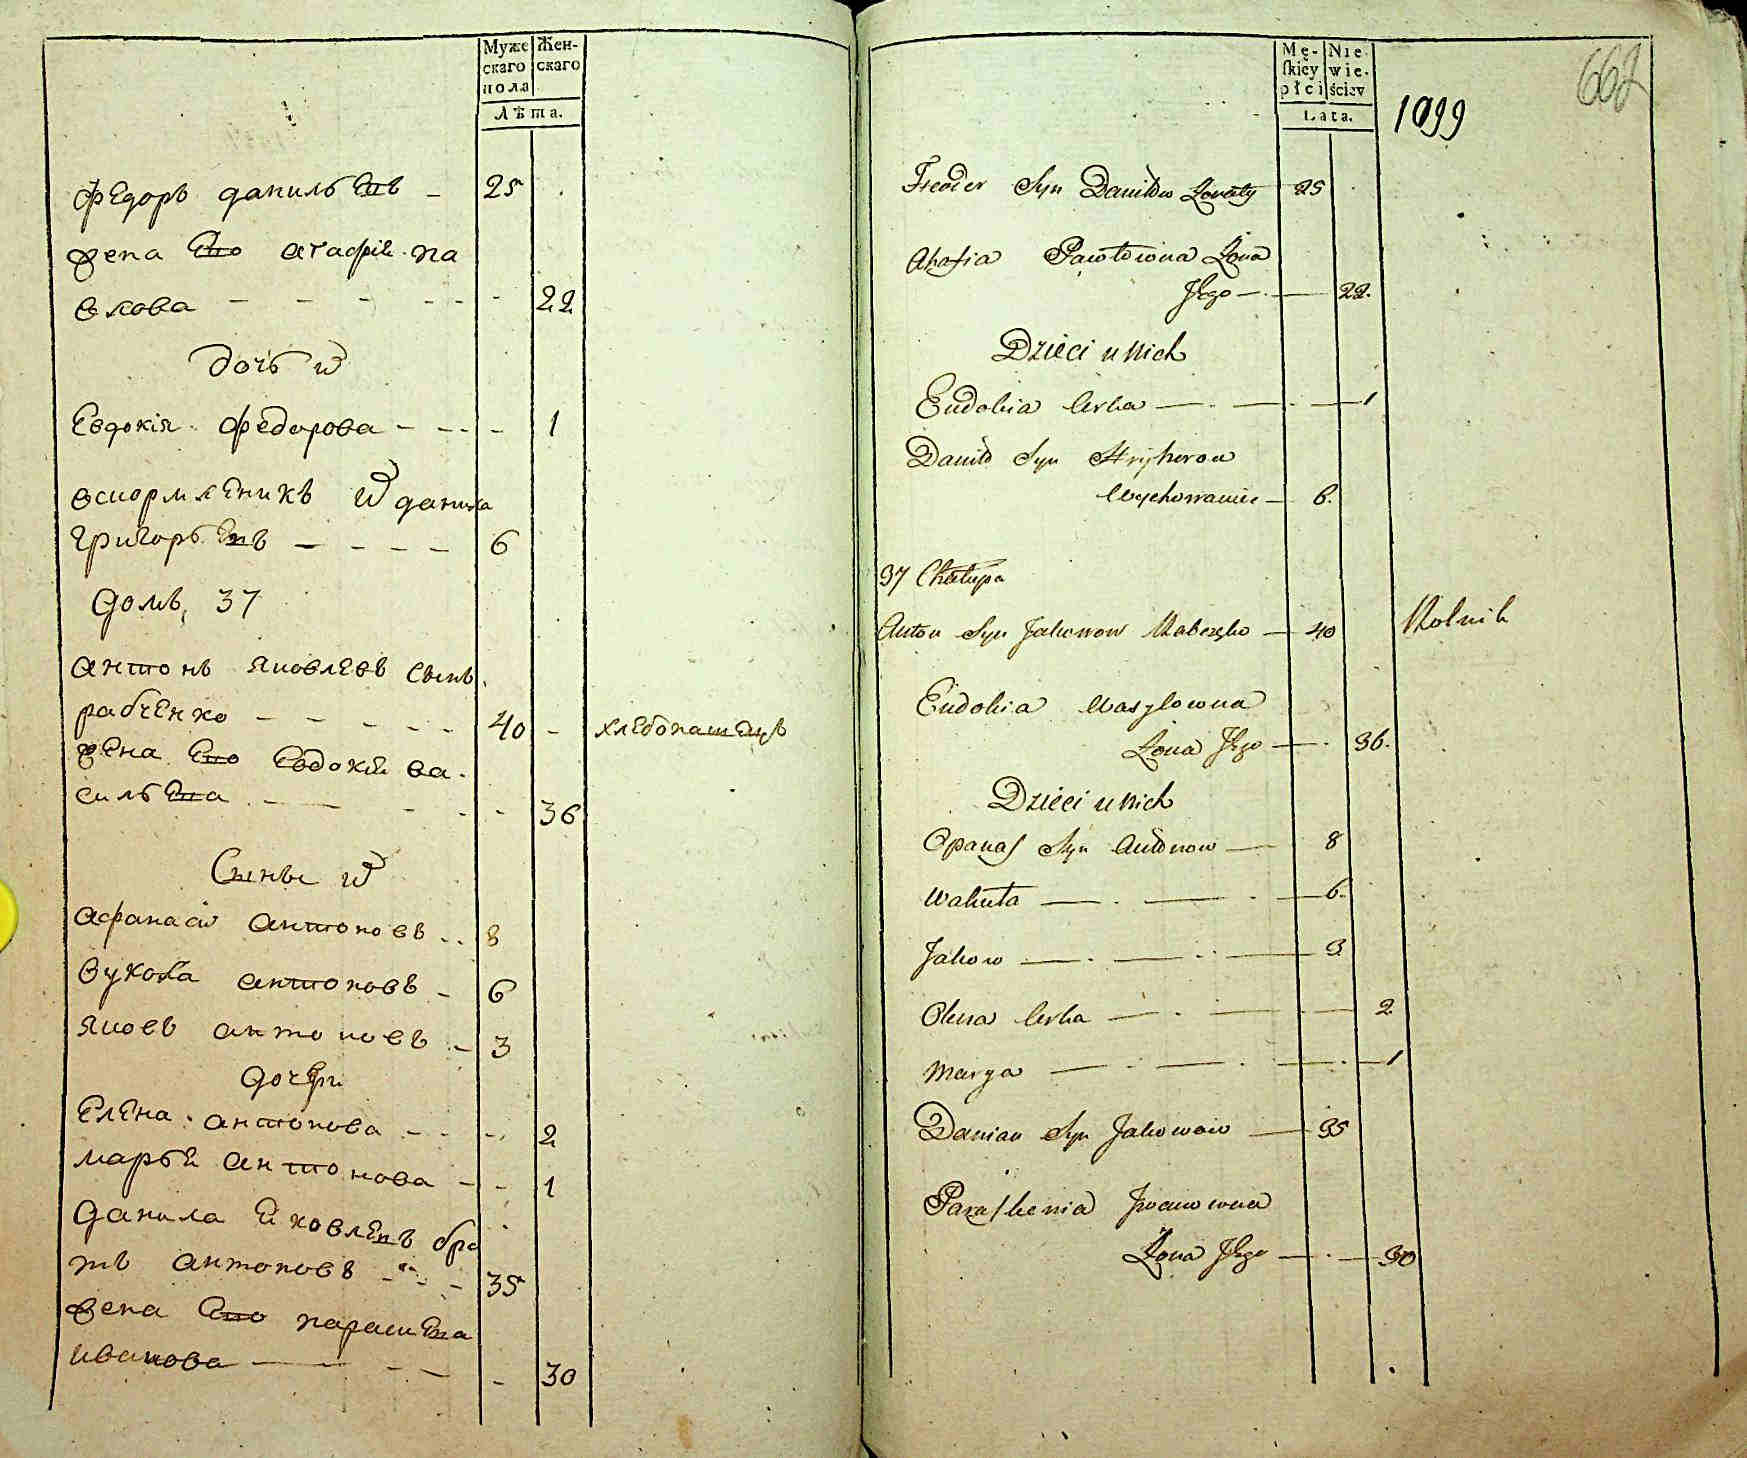 Муже Жен-
скаго скаго
пола
Лѣта.
Федоръ данильевъ - 25
жена Его агафiя па
влова - - - - - - 22
дочь ихъ
Евдокiя Федорова - - - - 1
вскормленикъ ихъ данила
григорьевъ - - - - 6
домъ, 37
антонъ яковлевъ сынъ
рабченко - - - - - 40 - хлебопашецъ
жена Его Евдокiя ва-
сильева - - - - - 36
Сыны ихъ
афанасiй антоновъ - - 8
вукола антоновъ - 6
яковъ антоновъ - 3
дочери
Елена антонова - - - 2
марья антонова - - 1
данила яковлевъ бра
тъ антоновъ - - - 35
жена Его параскева
иванова - - - - - 30
Mę- Nie-
skiey wie-
płci ściey
Lata.
1099
662
Fieoder Syn Daniłow Żonaty 25
Ahafia Pawłowna Żona
Jego — . — 22.
Dzieci u Nich
Eudokia Corka — . — . — 1
Daniło Syn Hryhorow
Wychowaniec — 6.
37 Chałupa
Anton Syn Jakowow Rabczęko — 40 Rolnik
Eudokia Wasylowna
Żona Jego — . 36.
Dzieci u Nich
Opanas Syn Antonow — 8
Wakuła — . — . — 6.
Jakow — . — . . — 3
Olena Corka — . — — 2
Marya — . — . — . — 1
Damian Syn Jakowow — 35
Paraskewia Jwanowna
Żona Jego — . — 30